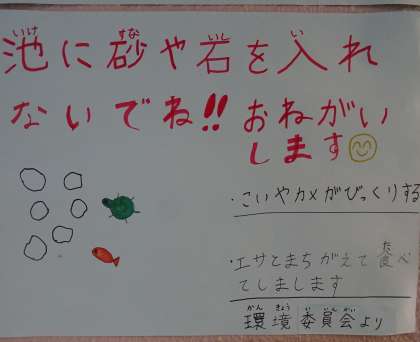 池に砂や石を入れ
ないでね!! おねがい
します
・こいやカメがびっくりする
・エサとまちがえて食べ
てしまします
環境委員会より